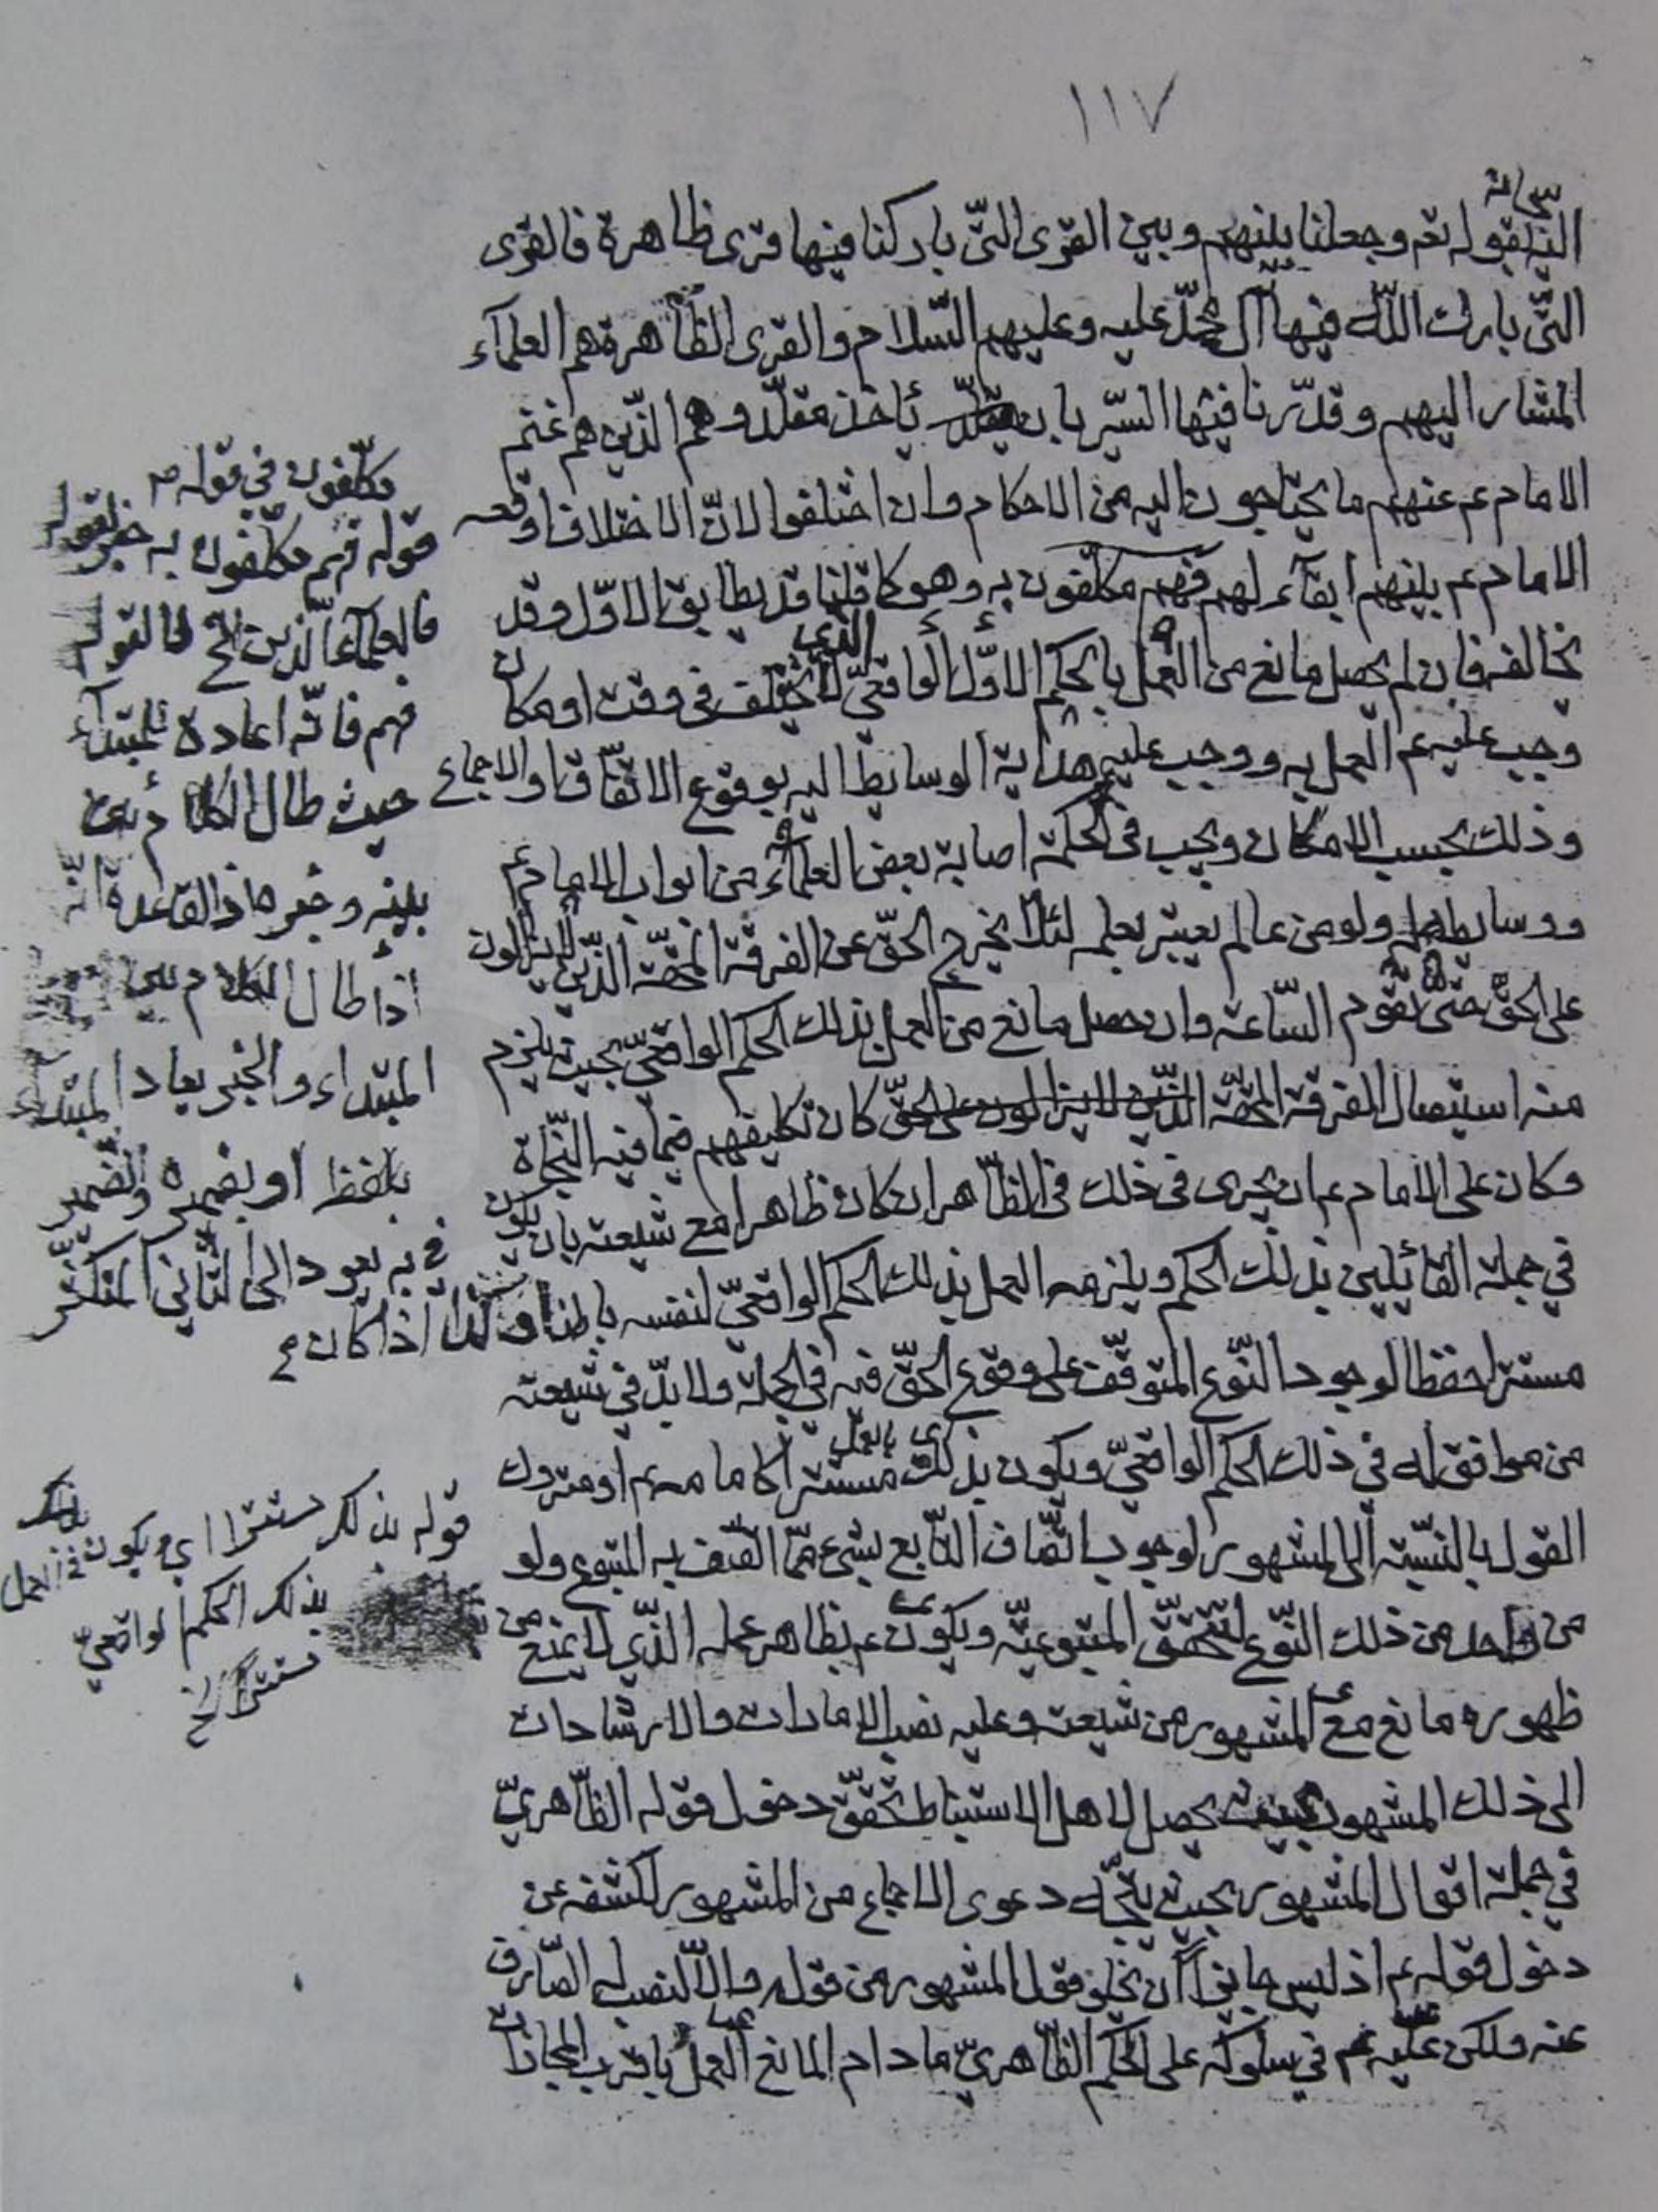 ١١٧
سبحانه
اليه بقوله تعم وجعلنا بينهم وبين القرى التّي باركنا فيها قرى ظاهرة فالقرى
التّي بارك اللّه فيها آل محمّد عليه وعليهم السّلام والقرى الظّاهرة هم العلمآء
المشار اليهم وقدّرنا فيها السّير بان يأخذ مقلّدوهم الذّين هم غنم
الامام عم عنهم ما يحتاجون اليه من الاحكام وان اختلفوا لانّ الاختلاف اوقعه
الامام عم بينهم ابقآء لهم فهم مكلّفون به وهو كما قلنا قد يطابق الاوّل وقد
يخالفه فان لم يحصل مانع من العمل بالحكم الاوّل الواقعيّ الذي لا يختلف في وقت او مكان
وجب عليه عم العمل به ووجب عليه هداية الوسايط اليه بوقوع الاتّفاق والاجماع
وذلك بحسب الامكان ويجب في الحكمة اصابة بعض العلمآء من ابواب الامام عم
ووسايطهم ولو من عالم يعتبر بعلمه لئلا يخرج الحقّ عن الفرقة المحقّة الذّين لا يزالون
على الحقّ حتّى تقوم السّاعة وان حصل مانع من العمل بذلك الحكم الواقعيّ بحيث يلزم
منه استيصال الفرقة المحقّة الذّين لا يزالون على الحقّ كان تكليفهم فيما فيه النّجاة
وكان على الامام عم ان يجرى في ذلك في الظّاهر ان كان ظاهرا مع شيعته بان يكون
في جملة القائلين بذلك الحكم ويلزمه العمل بذلك الحكم الواقعيّ لنفسه باطنا وكذا اذا كان عم
مستترا حفظا لوجود النّوع المتوقّف على وقوع الحقّ فيه في الجملة ولا بدّ في شيعته
من موافق له في ذلك الحكم الواقعيّ ويكون بذلك اى بالعمل مستترا كامامه عم او متروك
القول بالنّسبة الى المشهور لوجوب اتّصاف التّابع بشيء ممّا اتّصف به المتبوع ولو
من واحد من ذلك النّوع لتحقّق المتبوعيّة ويكون عم بظاهر عمله الذّي لا يمنع من
ظهوره مانع مع المشهور من شيعته وعليه نصب الامارات والارشادات
الى ذلك المشهور بحيث يحصل لاهل الاستنباط تحقّق دخول قوله الظّاهريّ
في جملة اقوال المشهور بحيث يتّجه دعوى الاجماع من المشهور لكشفه عن
دخول قوله عم اذ ليس جايزا ان يخلو قول المشهور من قوله والّا لنصب له الصّارف
عنه ولكن عليه عم في سلوكه على الحكم الظّاهريّ ما دام المانع العمل باقرب المجازات
مكلّفون في قوله
قوله فهم مكلفون به خبر لقوله
فالعلمآء الّذين الخ فالقوله
فهم فانّه اعادة للمبتدآء
حيث طال الكلام بين
بينه وخبره اذ القاعدة انّه
اذا طال الكلام بين
المبتداء والخبر يعاد المبتداء
بلفظه او بضميره والضمير
في به يعود الى الثّاني المنكّر
قوله بذلك مستترا اي ويكون في العمل
بذلك الحكم الواقعيّ
مستترا الخ